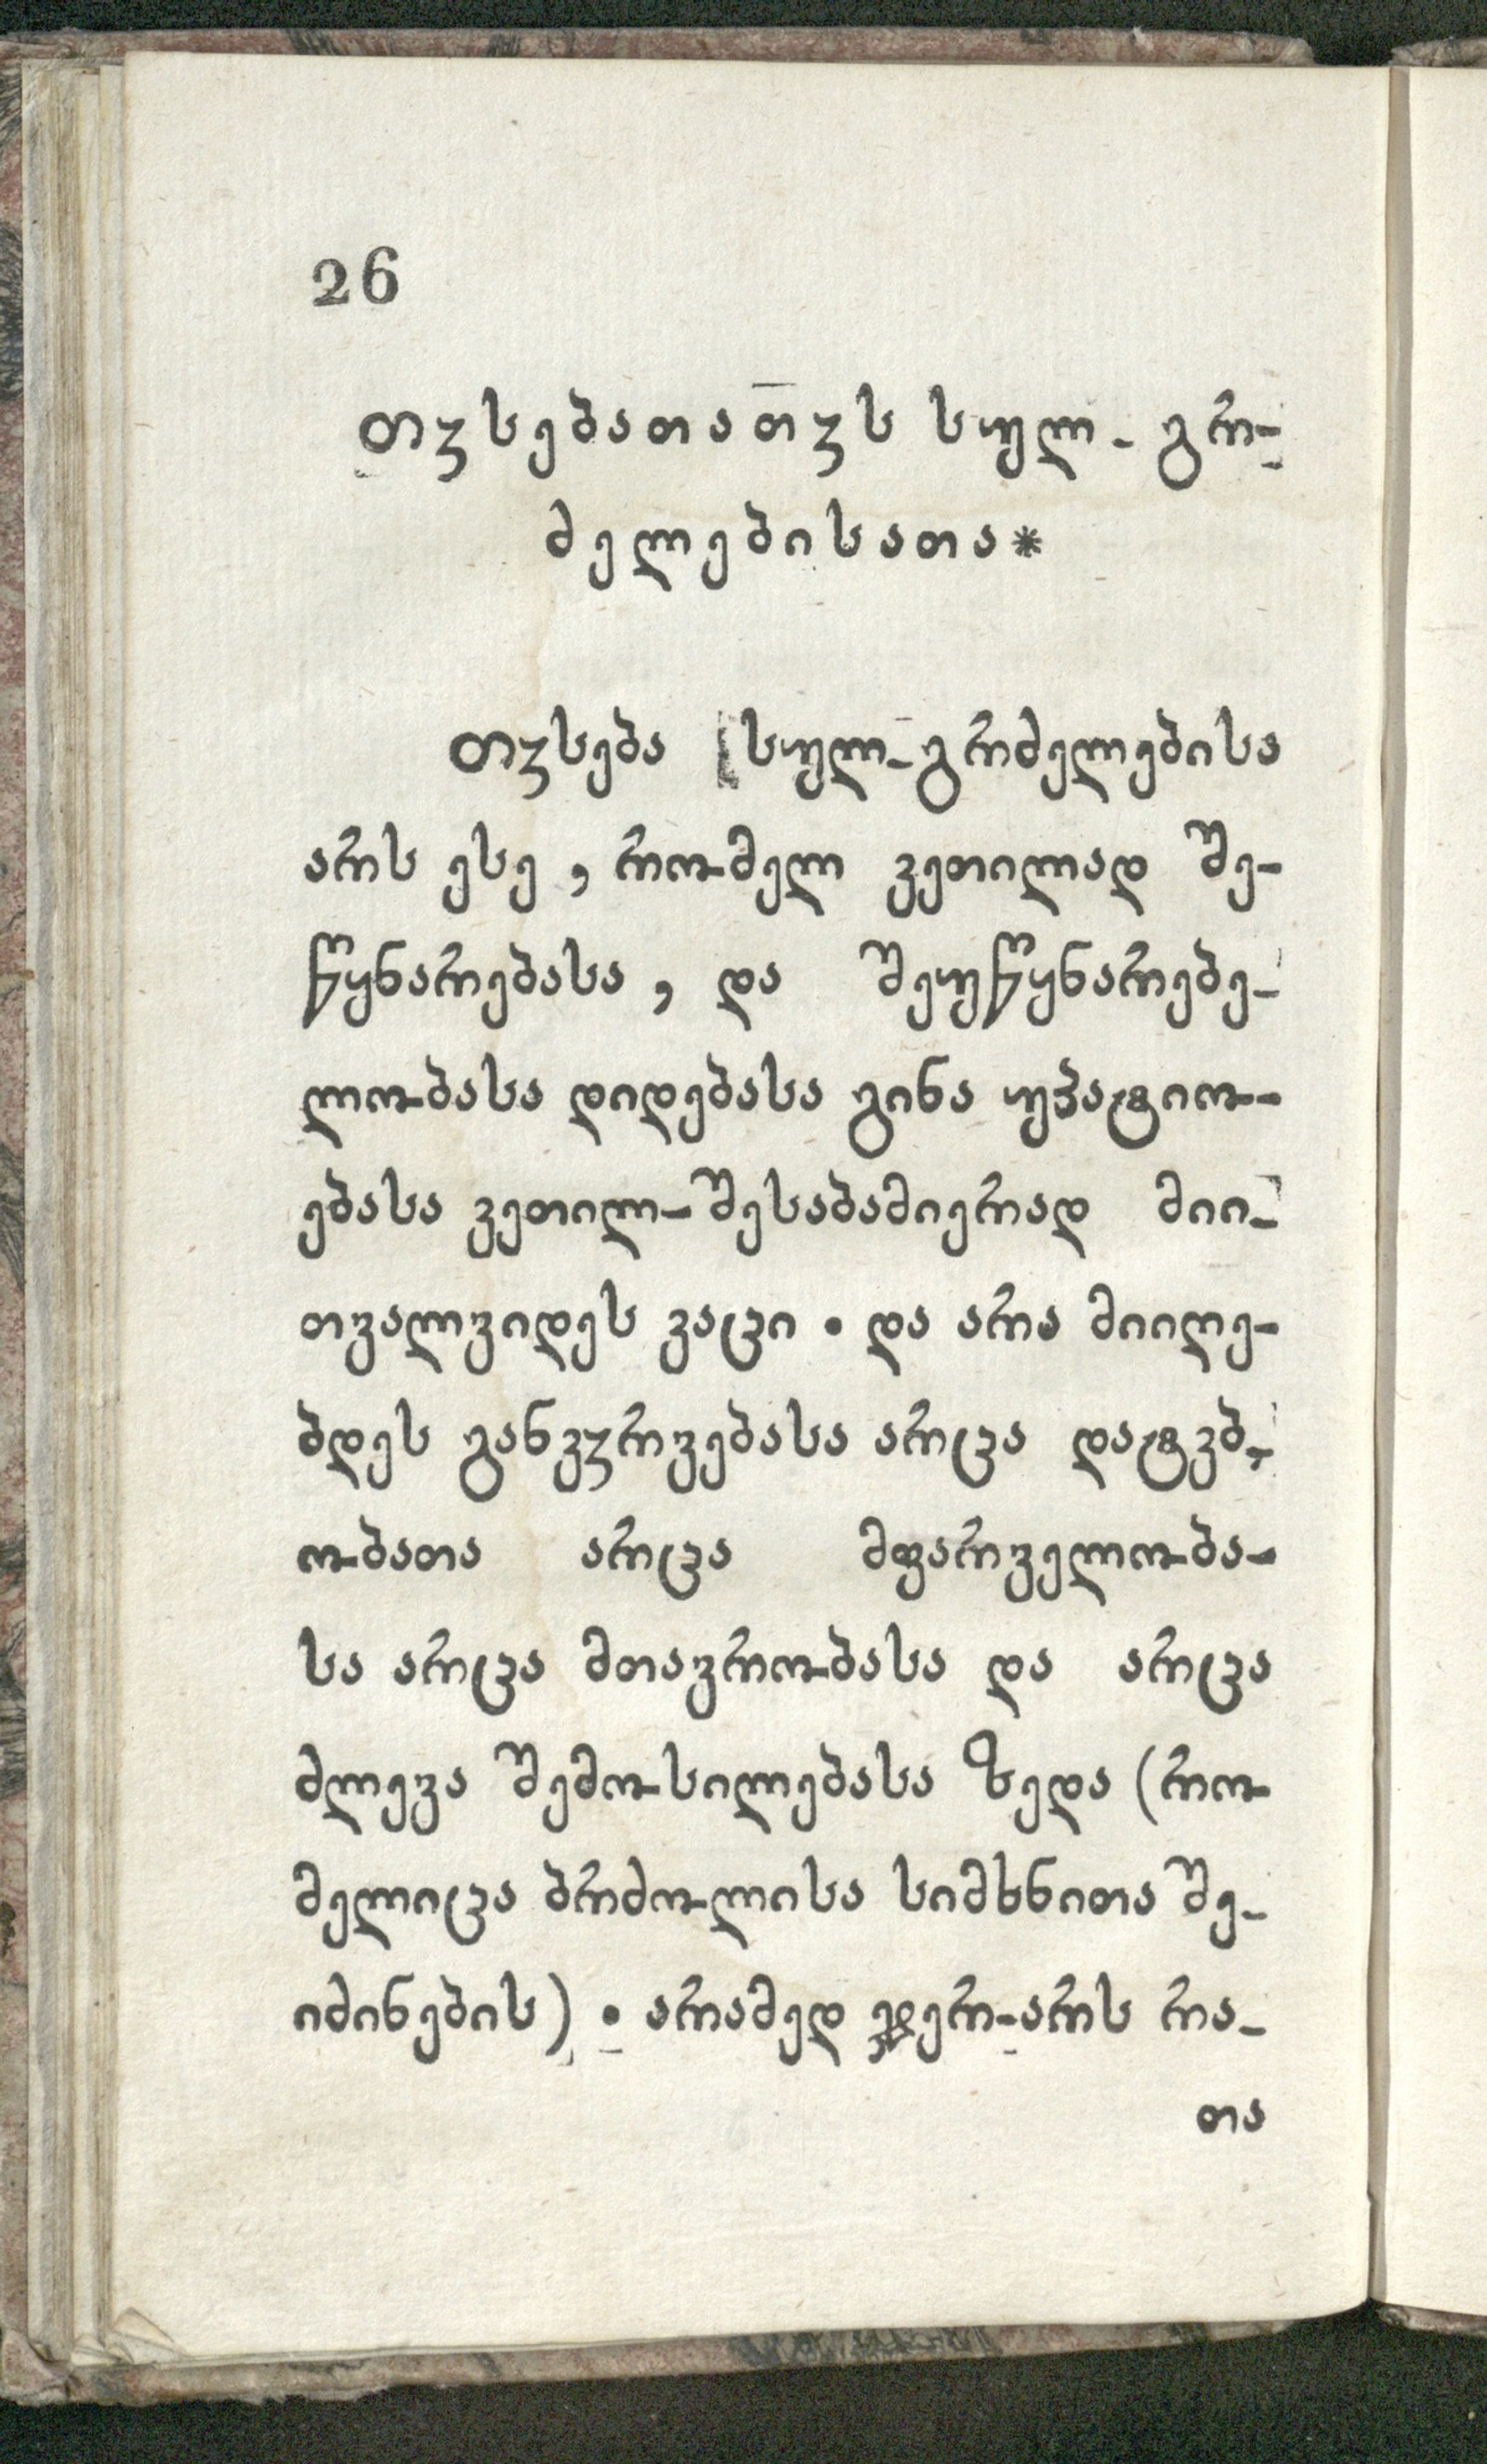 26
თჳსებათათჳს სულ-გრ-
ძელებისათა*
თჳსება სულ-გრძელებისა
არს ესე, რომელ კეთილად შე-
წყნარებასა, და შეუწყნარებე-
ლობასა დიდებასა გინა უპატიო-
ებასა კეთილ-შესაბამიერად მიი-
თვალვიდეს კაცი. და არა მიიღე-
ბდეს განკჳრვებასა არცა დატკბ-
ობათა არცა მფარველობა-
სა არცა მთავრობასა და არცა
ძლევა შემოსილებასა ზედა (რო-
მელიცა ბრძოლისა სიმხნითა შე-
იძინების). არამედ ჯერ-არს რა-
თა